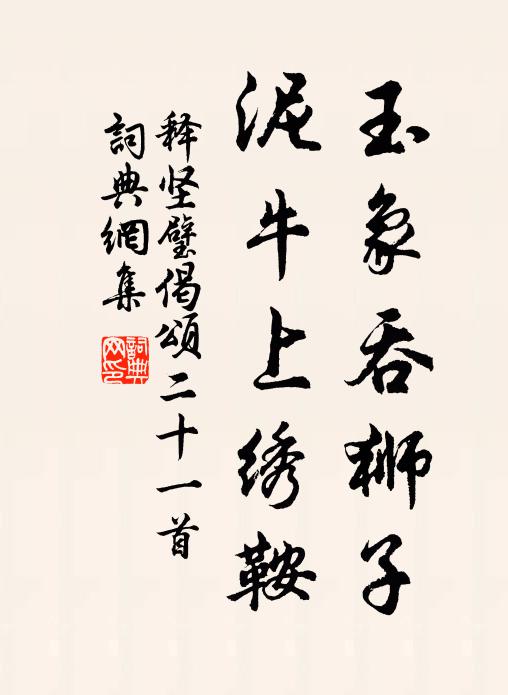 玉象吞狮子
泥牛上绣鞍
释坚璧偈颂二十一首
詞典網集
詞典网印